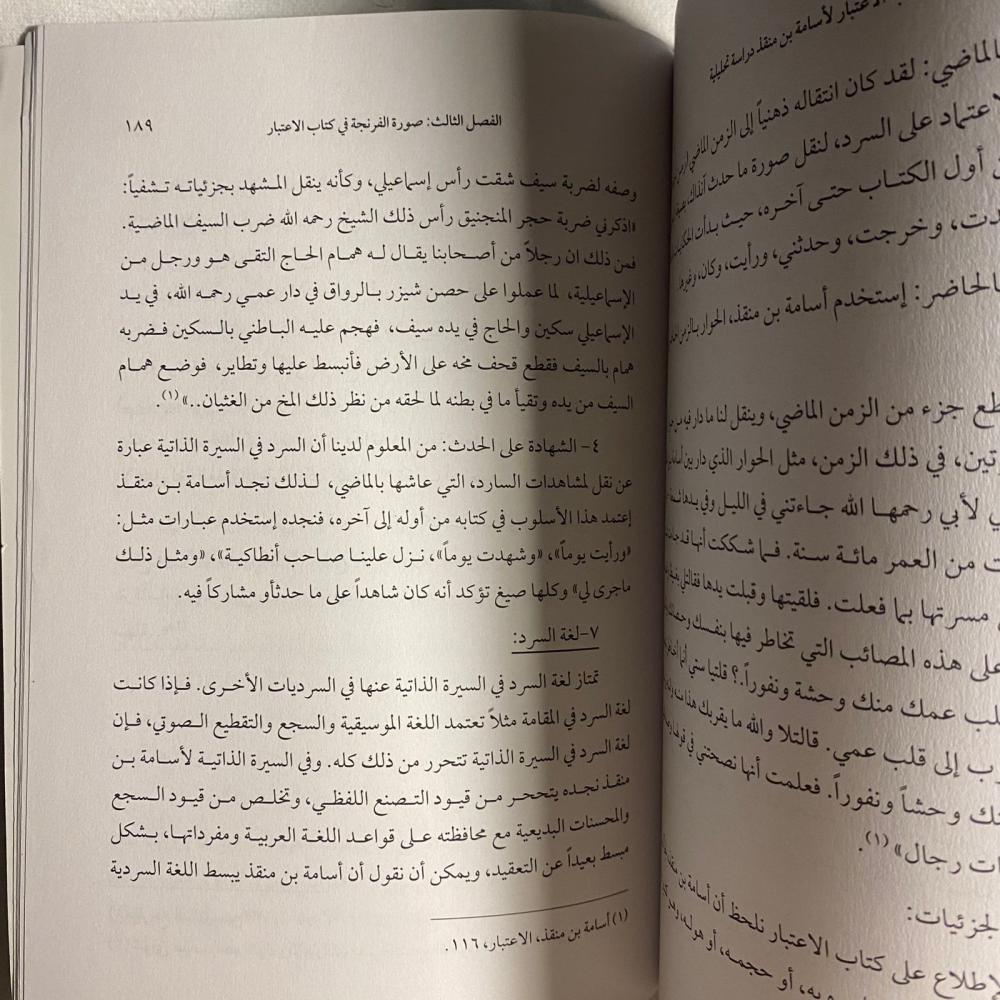 الاعتبار لأسامة بن منقذ دراسة تحليلية
بالماضي: لقد كان انتقاله ذهنياً إلى الزمن الماضي
الاعتماد على السرد، لنقل صورة ما حدث آنذاك،
أول الكتاب حتى آخره، حيث بدأت
وخرجت، وحدثني، ورأيت، وكان، وغيرها
بالحاضر: إستخدم أسامة بن منقذ، الحوار بالزمن
جزء من الزمن الماضي، وينقل لنا ما دار فيه من
في ذلك الزمن، مثل الحوار الذي دار بين
لأبي رحمها الله جاءتني في الليل وفي يدها
من العمر مائة سنة. فما شككت أنها قد
مسرتها بما فعلت. فلقيتها وقبلت يدها فقالتلي بغيظ
على هذه المصائب التي تخاطر فيها بنفسك وحصانك
قلب عمك منك وحشة ونفوراً.؟ قلتيا ستي أنما
إلى قلب عمي. قالتلا والله ما يقربك هذا منه
وحشاً ونفوراً. فعلمت أنها نصحتني في قولها
رجال» (١).
الجزئيات:
الإطلاع على كتاب الاعتبار نلحظ أن أسامة بن منقذ
أو حجمه، أو هوله، وهو
الفصل الثالث: صورة الفرنجة في كتاب الاعتبار ١٨٩
وصفه لضربة سيف شقت رأس إسماعيلي، وكأنه ينقل المشهد بجزئياته تشفياً:
«اذكرني ضربة حجر المنجنيق رأس ذلك الشيخ رحمه الله ضرب السيف الماضية.
فمن ذلك ان رجلاً من أصحابنا يقال له همام الحاج التقى هو ورجل من
الإسماعيلية، لما عملوا على حصن شيزر بالرواق في دار عمي رحمه الله، في يد
الإسماعيلي سكين والحاج في يده سيف، فهجم عليه الباطني بالسكين فضربه
همام بالسيف فقطع قحف مخه على الأرض فأنبسط عليها وتطاير، فوضع همام
السيف من يده وتقيأ ما في بطنه لما لحقه من نظر ذلك المخ من الغثيان..» (١).
٤- الشهادة على الحدث: من المعلوم لدينا أن السرد في السيرة الذاتية عبارة
عن نقل لمشاهدات السارد، التي عاشها بالماضي، لذلك نجد أسامة بن منقذ
إعتمد هذا الأسلوب في كتابه من أوله إلى آخره، فنجده إستخدم عبارات مثل:
«ورأيت يوماً»، «وشهدت يوماً»، نزل علينا صاحب أنطاكية»، «ومثل ذلك
ماجرى لي» وكلها صيغ تؤكد أنه كان شاهداً على ما حدثأو مشاركاً فيه.
٧-لغة السرد:
تمتاز لغة السرد في السيرة الذاتية عنها في السرديات الأخرى. فإذا كانت
لغة السرد في المقامة مثلاً تعتمد اللغة الموسيقية والسجع والتقطيع الصوتي، فإن
لغة السرد في السيرة الذاتية تتحرر من ذلك كله. وفي السيرة الذاتية لأسامة بن
منقذ نجده يتححرر من قيود التصنع اللفظي، وتخلص من قيود السجع
والمحسنات البديعية مع محافظته على قواعد اللغة العربية ومفرداتها، بشكل
مبسط بعيداً عن التعقيد، ويمكن أن نقول أن أسامة بن منقذ يبسط اللغة السردية
(١) أسامة بن منقذ، الاعتبار، ١١٦.